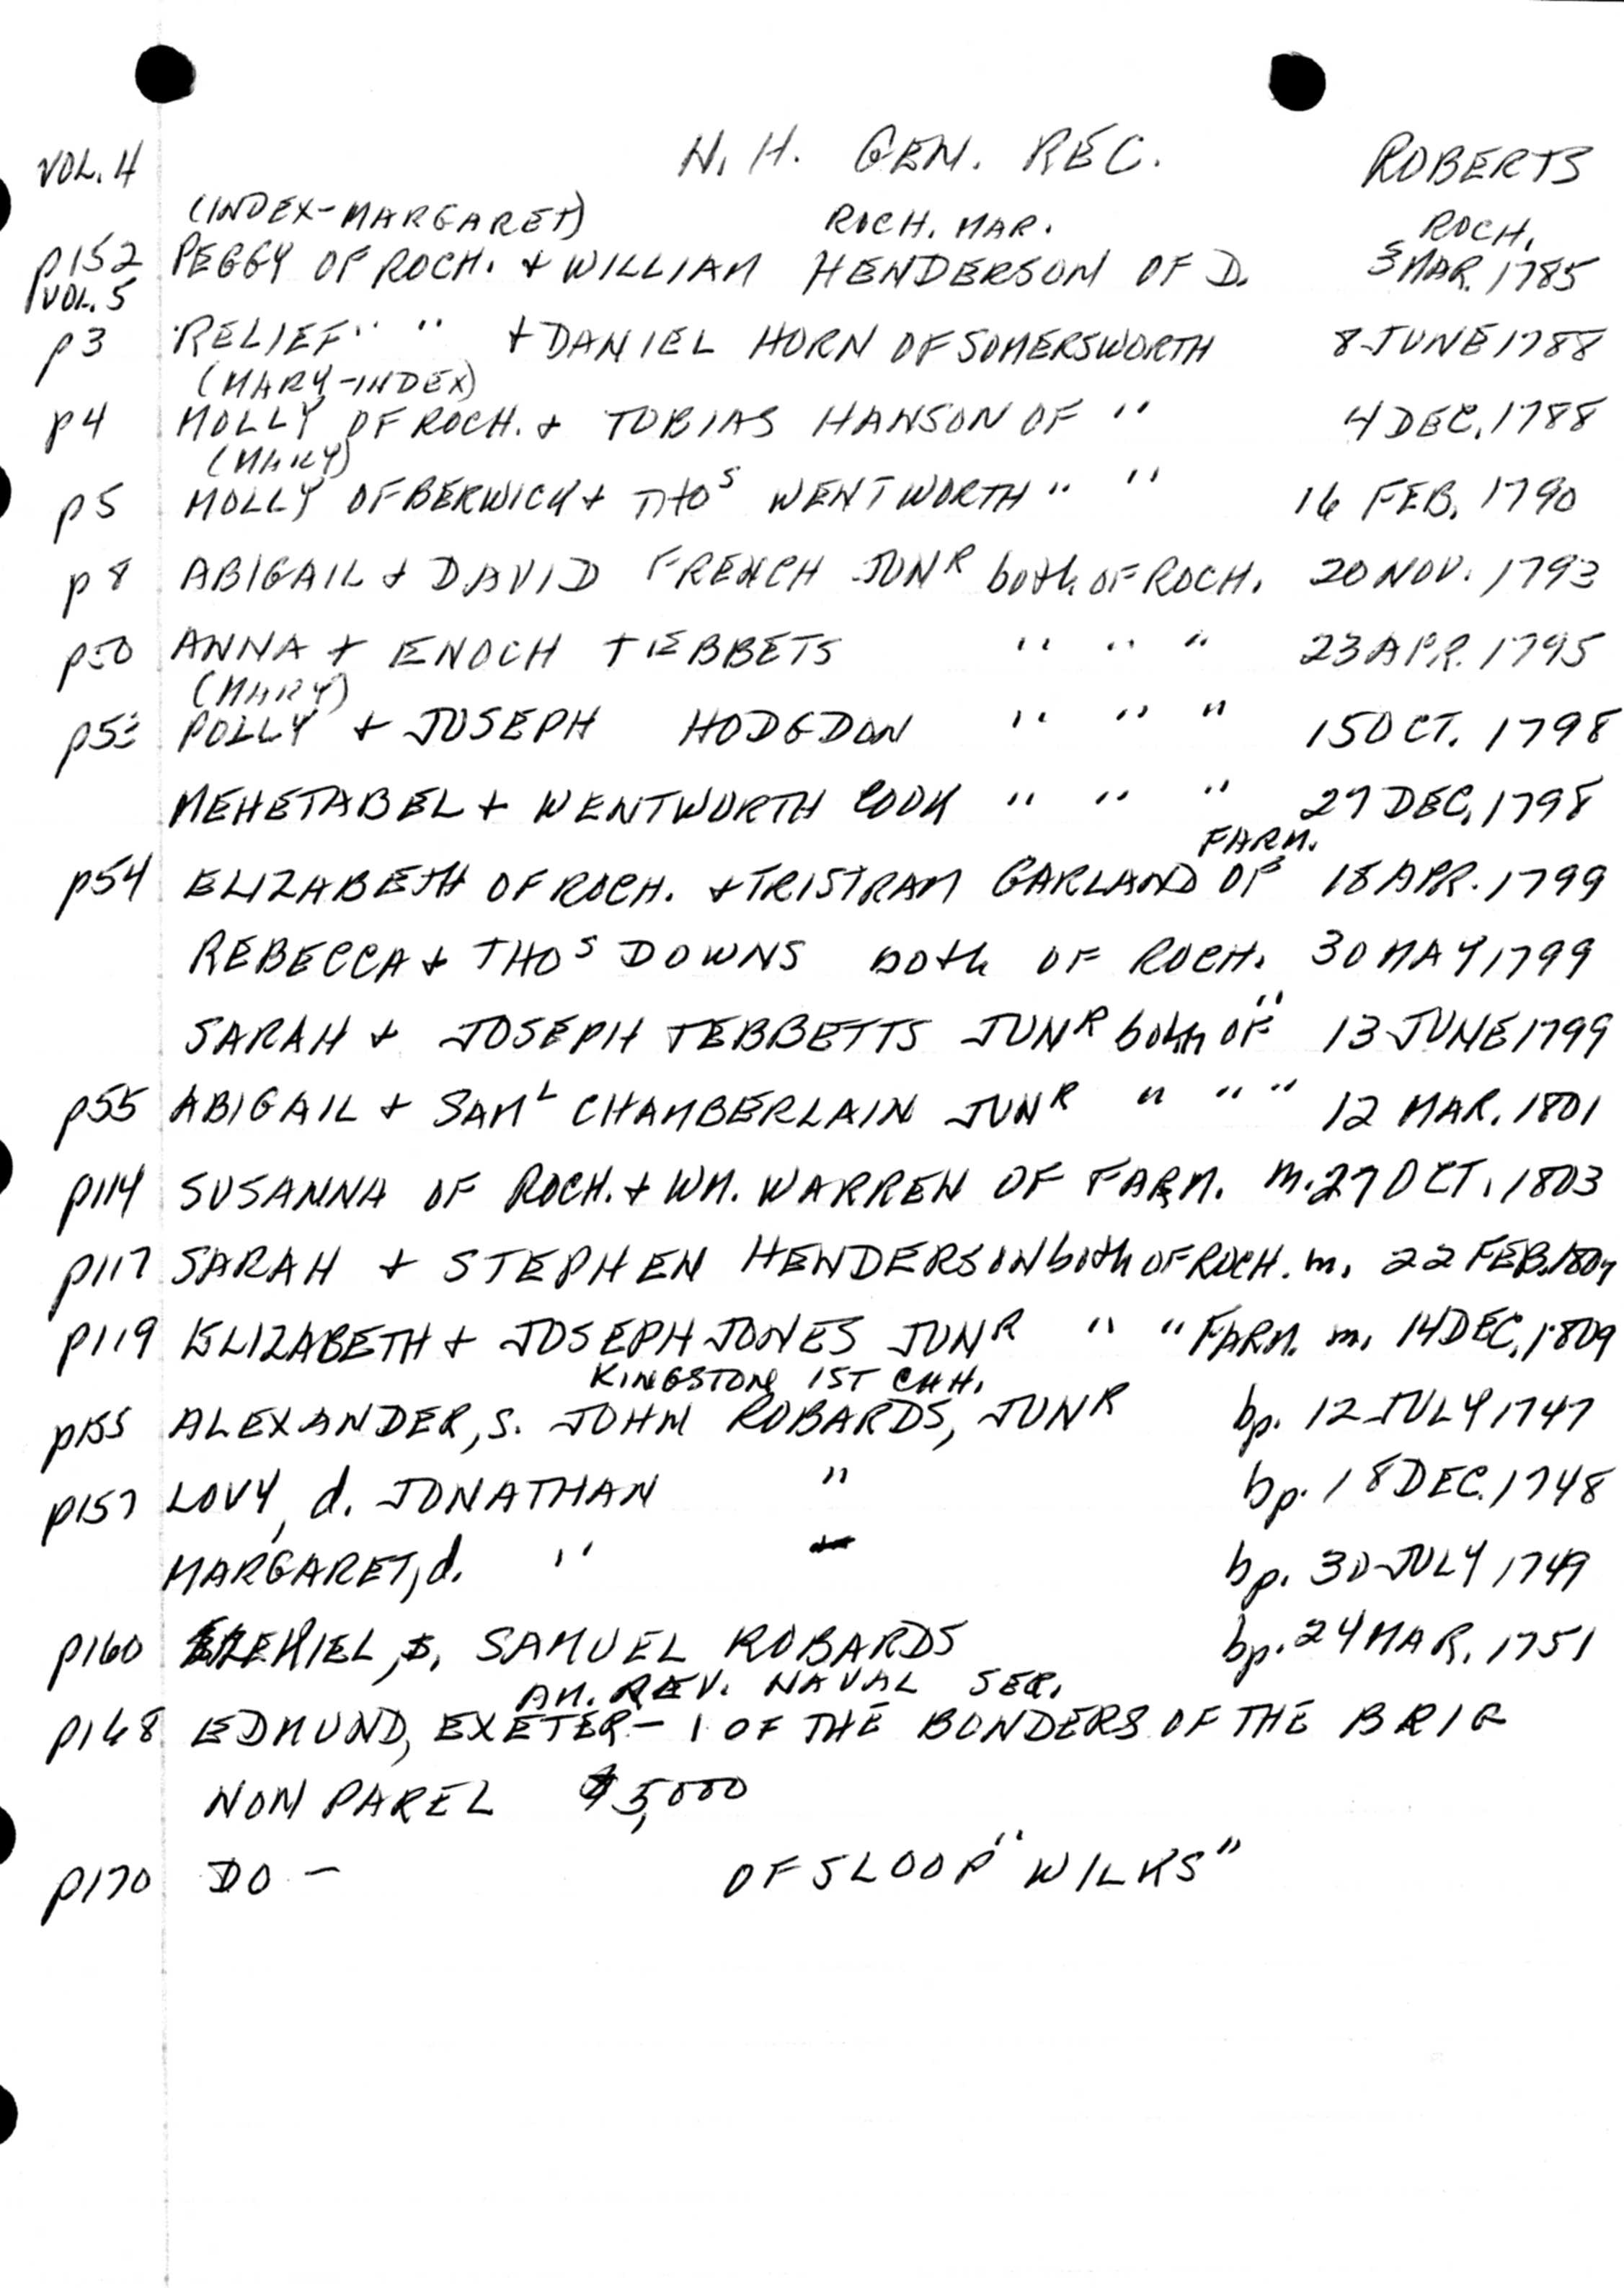 VOL. 4 N. H. GEN. REC. ROBERTS
(INDEX-MARGARET) ROCH. MAR. ROCH.
p152 PEGGY OF ROCH. + WILLIAM HENDERSON OF D. 3 MAR. 1785
VOL. 5
p3 RELIEF " " + DANIEL HORN OF SOMERSWORTH 8 JUNE 1788
(MARY-INDEX)
p4 MOLLY OF ROCH. + TOBIAS HANSON OF " 4 DEC. 1788
(MARY)
p5 MOLLY OF BERWICK + THOS WENTWORTH " " 16 FEB. 1790
p8 ABIGAIL + DAVID FRENCH JUNR both OF ROCH. 20 NOV. 1793
p50 ANNA + ENOCH TEBBETS " " " 23 APR. 1795
(MARY)
p53 POLLY + JOSEPH HODGDON " " " 15 OCT. 1798
MEHETABEL + WENTWORTH COOK " " " 27 DEC. 1798
FARM.
p54 ELIZABETH OF ROCH. + TRISTRAM GARLAND OF 18 APR. 1799
REBECCA + THOS DOWNS both OF ROCH. 30 MAY 1799
SARAH + JOSEPH TEBBETTS JUNR both OF " 13 JUNE 1799
p55 ABIGAIL + SAML CHAMBERLAIN JUNR " " " 12 MAR. 1801
p114 SUSANNA OF ROCH. + WM. WARREN OF FARM. m. 27 OCT. 1803
p117 SARAH + STEPHEN HENDERSON both OF ROCH. m. 22 FEB. 1807
p119 ELIZABETH + JOSEPH JONES JUNR " " FARM. m. 14 DEC. 1809
KINGSTON 1ST CHH.
p155 ALEXANDER, S. JOHN ROBARDS, JUNR bp. 12 JULY 1747
p157 LOVY, d. JONATHAN " bp. 18 DEC. 1748
MARGARET, d. " bp. 30 JULY 1749
p160 EZEKIEL, S. SAMUEL ROBARDS bp. 24 MAR. 1751
AM. REV. NAVAL SER.
p168 EDMUND, EXETER - 1 OF THE BONDERS OF THE BRIG
NON PAREL $5,000
p170 DO - OF SLOOP "WILKS"